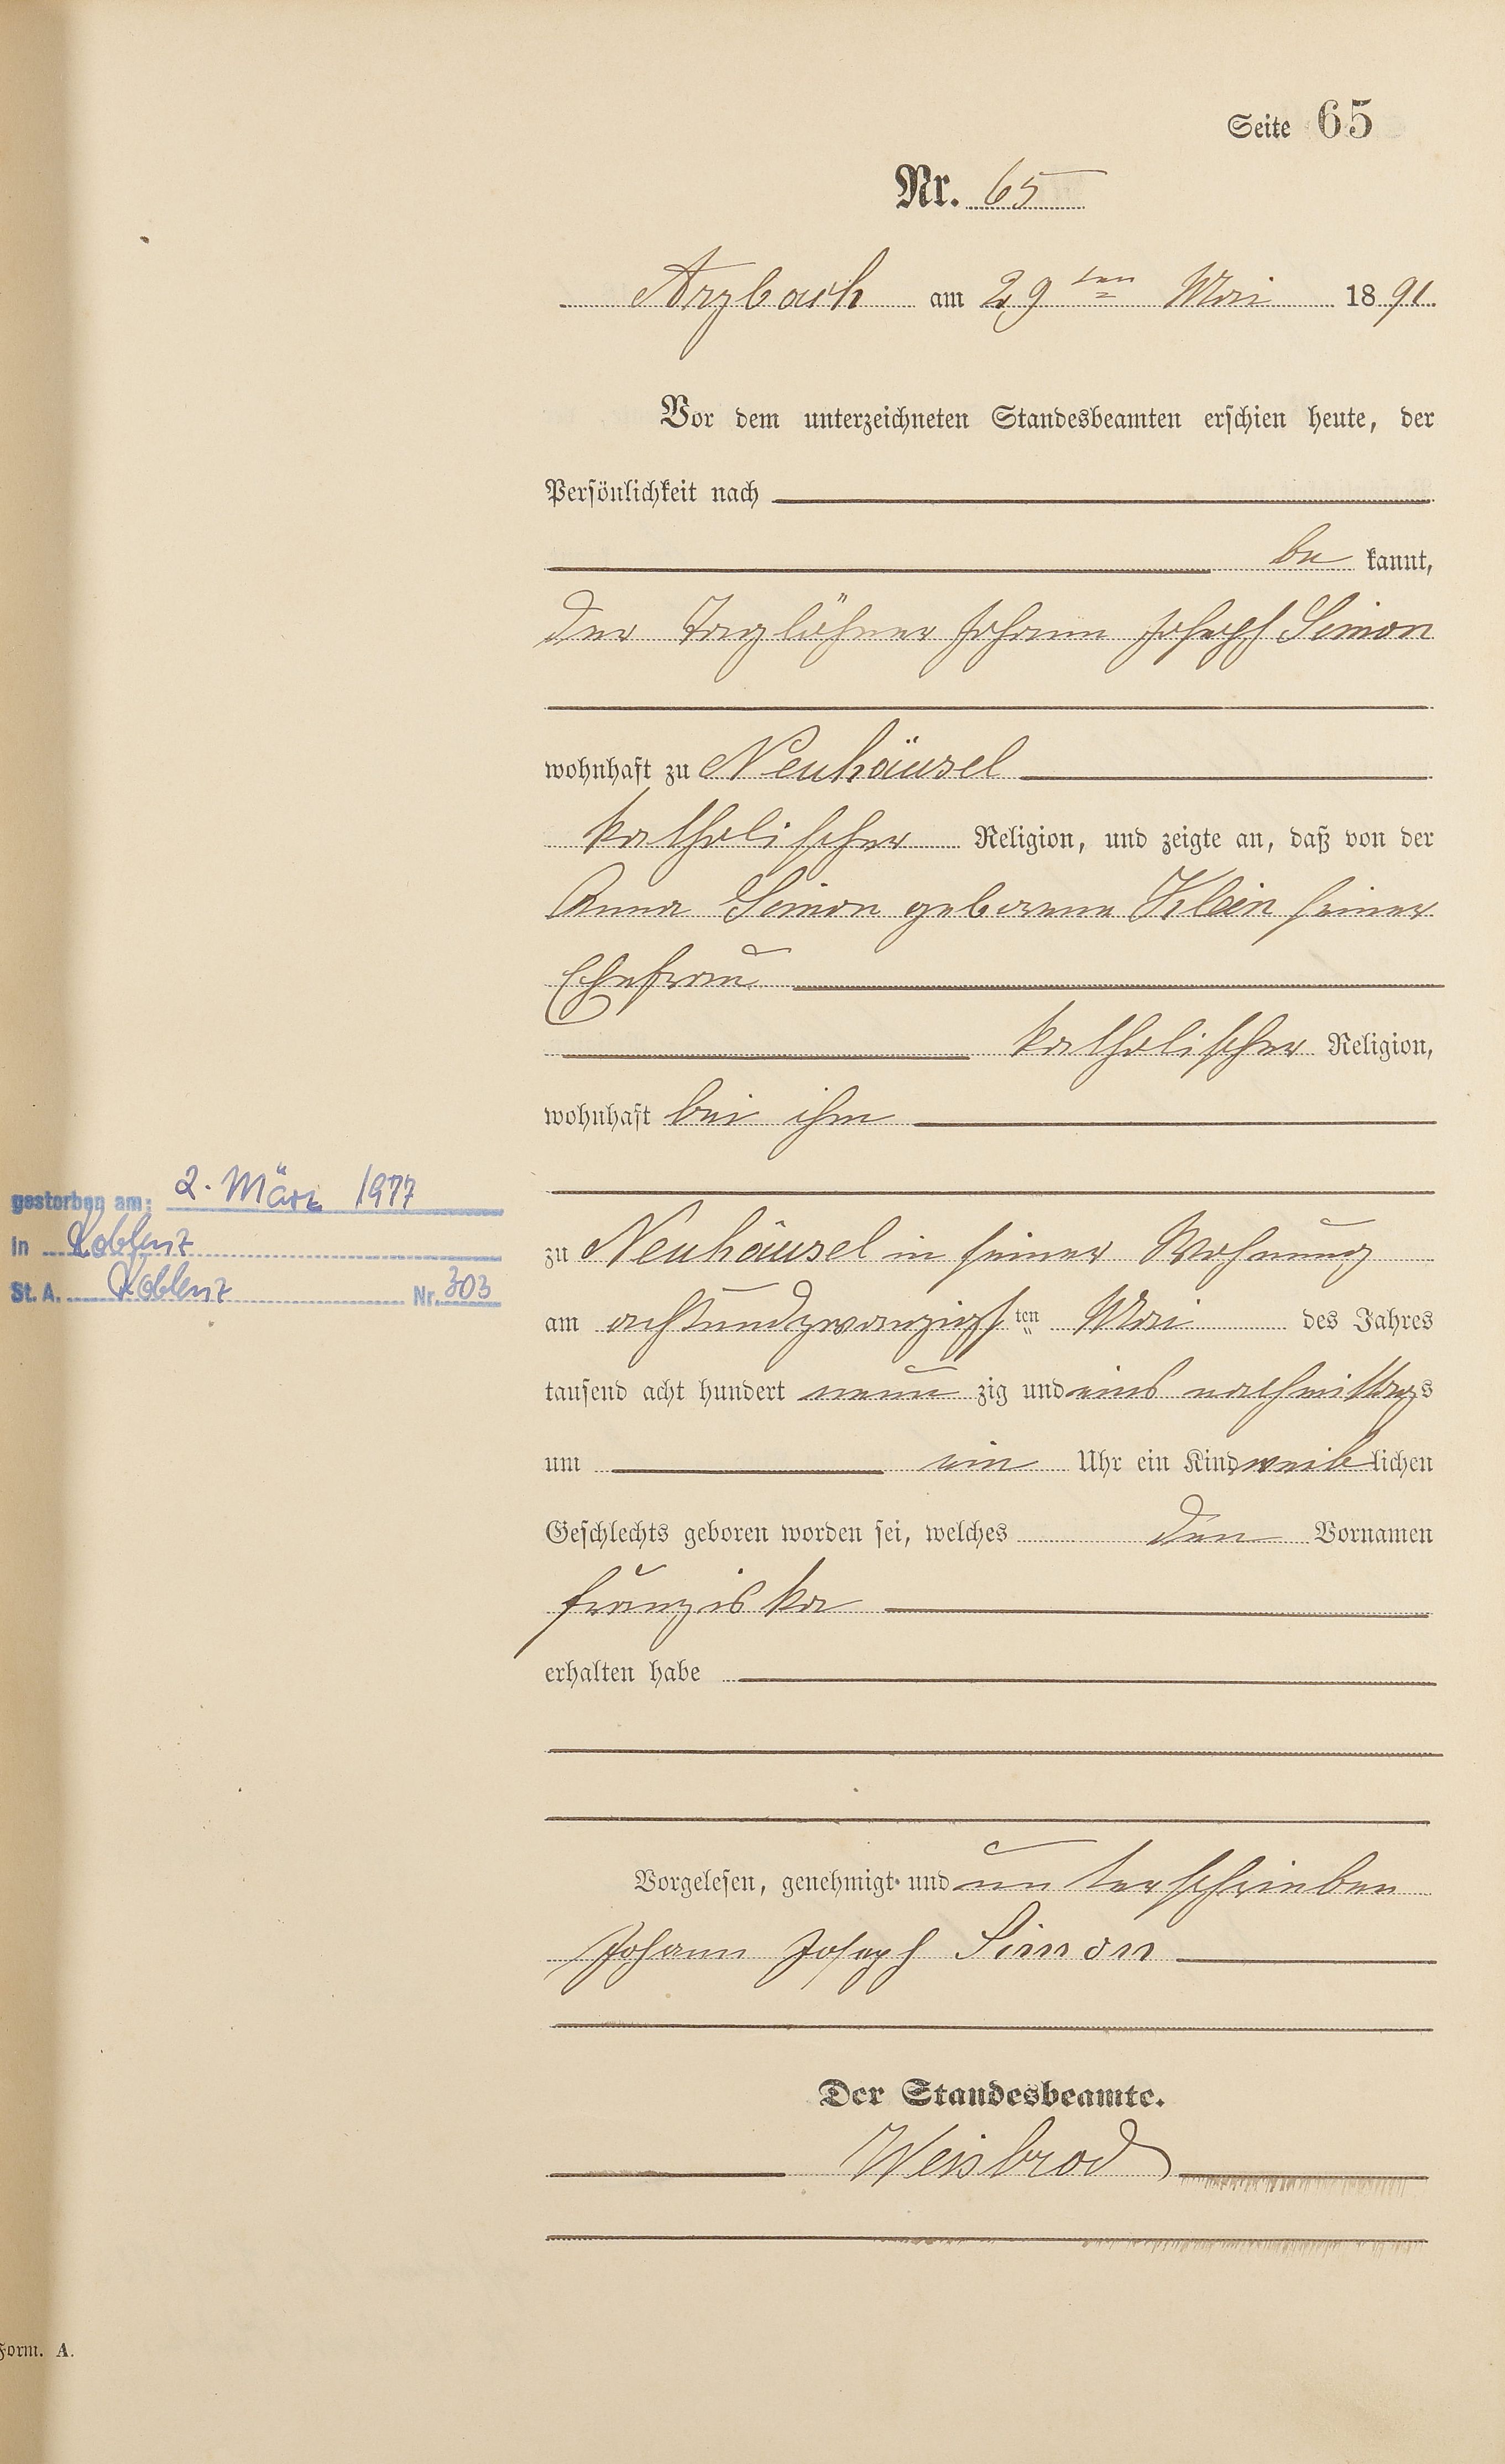 Seite 65
Nr. 65
Arzbach am 29ten Mai 1891.
Vor dem unterzeichneten Standesbeamten erschien heute, der
Persönlichkeit nach
be kannt,
der Taglöhner Johann Joseph Simon
wohnhaft zu Neuhäusel
katholischer Religion, und zeigte an, daß von der
Anna Simon geborene Klein seiner
Ehefrau
katholischer Religion,
wohnhaft bei ihm
gestorben am: 2. März 1977
in Koblenz
St. A. Koblenz Nr. 303
zu Neuhäusel in seiner Wohnung
am achtundzwanzigsten Mai des Jahres
tausend acht hundert neun zig und eins nachmittags
um ein Uhr ein Kind weiblichen
Geschlechts geboren worden sei, welches den Vornamen
Franziska
erhalten habe
Vorgelesen, genehmigt und unterschrieben
Johann Joseph Simon
Der Standesbeamte.
Weisbrod
Form. A.